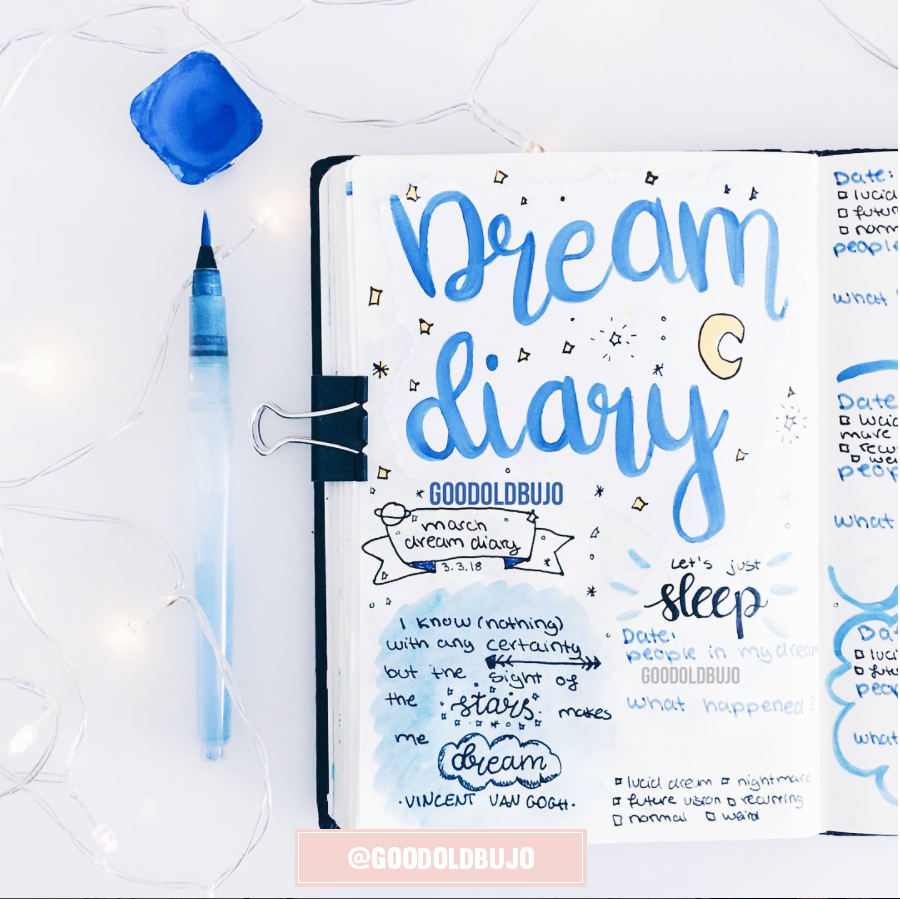 Dream
diary
GOODOLDBUJO
march
dream diary
3.3.18
I know (nothing)
with any certainty
but the sight of
the stars makes
me dream
·VINCENT VAN GOGH·
Let's just
sleep
Date:
people in my dream
GOODOLDBUJO
what happened?
lucid dream nightmare
future vision recurring
normal weird
Date:
lucid
futur
norm
people
what
Date
lucid
mare
recu
wei
peop
what
Dat
luci
futu
peop
what
@GOODOLDBUJO